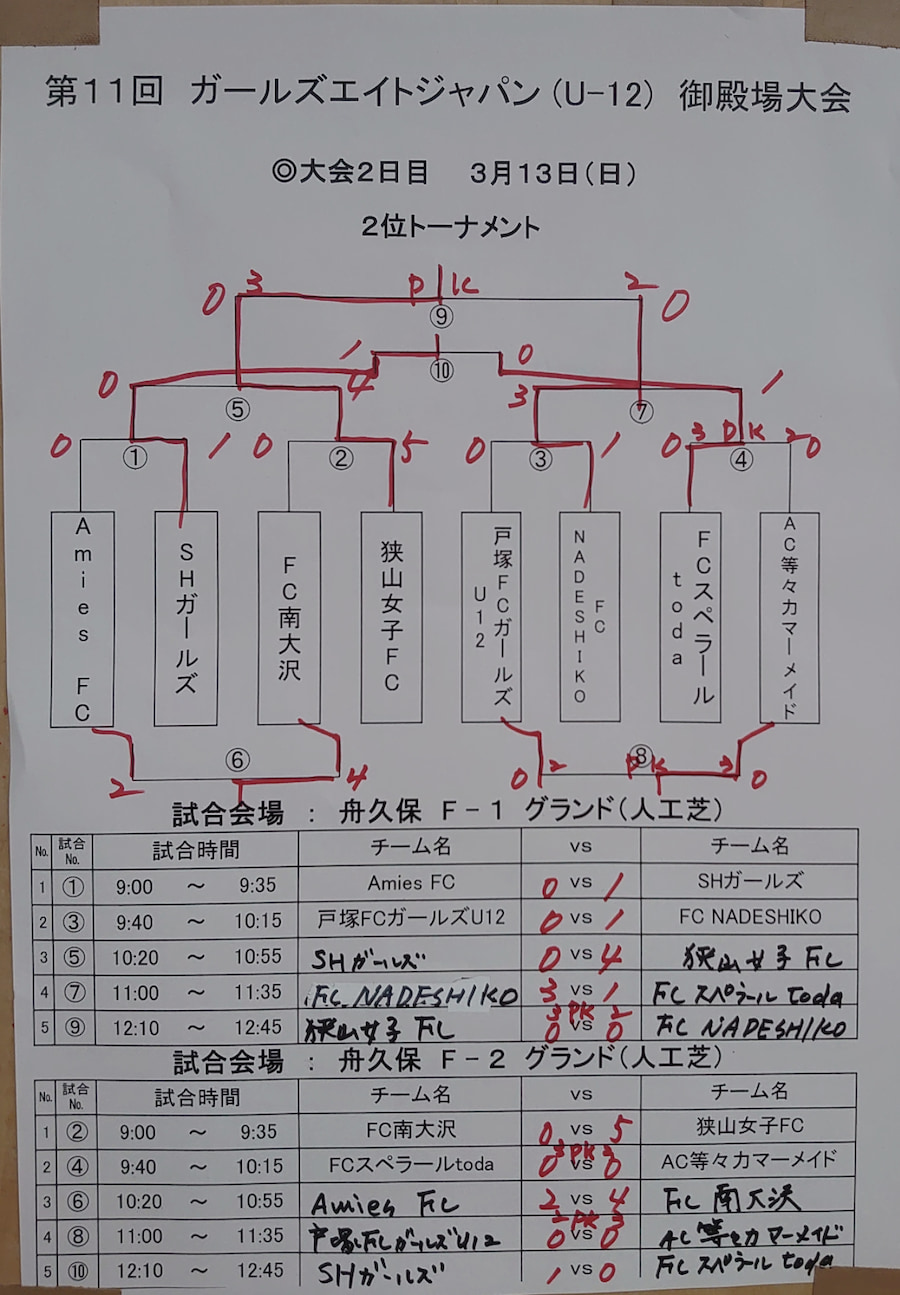 第11回 ガールズエイトジャパン(U-12) 御殿場大会
◎大会2日目 3月13日(日)
2位トーナメント
0 3 PK 2 0
⑨
1 ⑩ 0
0 ⑤ 4 3 ⑦ 1
0 ① 1 0 ② 5 0 ③ 1 0 3 PK 2 0
④
Amies FC
SHガールズ
FC南大沢
狭山女子FC
戸塚FCガールズ
U12
FC
NADESHIKO
FCスペラール
toda
AC等々力マーメイド
2 ⑥ 4 0 2 PK ⑧ 3 0
試合会場 : 舟久保 F-1 グランド(人工芝)
No. 試合No. 試合時間 チーム名 vs チーム名
1 ① 9:00 ~ 9:35 Amies FC 0 vs 1 SHガールズ
2 ③ 9:40 ~ 10:15 戸塚FCガールズU12 0 vs 1 FC NADESHIKO
3 ⑤ 10:20 ~ 10:55 SHガールズ 0 vs 4 狭山女子FC
4 ⑦ 11:00 ~ 11:35 FC NADESHIKO 3 vs 1 FCスペラールtoda
3 PK 2
5 ⑨ 12:10 ~ 12:45 狭山女子FC 0 vs 0 FC NADESHIKO
試合会場 : 舟久保 F-2 グランド(人工芝)
No. 試合No. 試合時間 チーム名 vs チーム名
1 ② 9:00 ~ 9:35 FC南大沢 0 vs 5 狭山女子FC
3 PK 2
2 ④ 9:40 ~ 10:15 FCスペラールtoda 0 vs 0 AC等々力マーメイド
3 ⑥ 10:20 ~ 10:55 Amies FC 2 vs 4 FC南大沢
2 PK 3
4 ⑧ 11:00 ~ 11:35 戸塚FCガールズU12 0 vs 0 AC等々力マーメイド
5 ⑩ 12:10 ~ 12:45 SHガールズ 1 vs 0 FCスペラールtoda